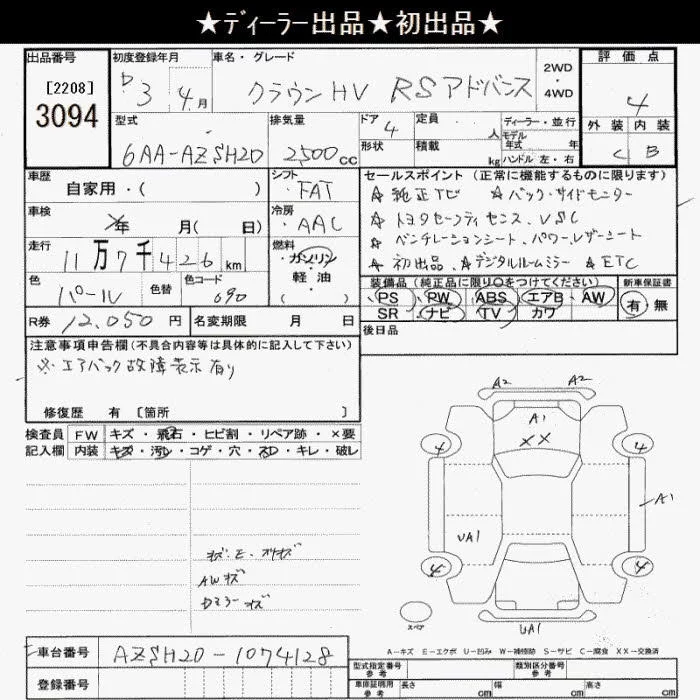 ★ディーラー出品★初出品★
出品番号 初度登録年月 車名・グレード 評価点
[2208] 3094
3年 4月 クラウンHV RSアドバンス 2WD・4WD 4
外装 内装
C B
型式 排気量 ドア 定員 ディーラー・並行
6AA-AZSH20 2500cc 4 人 モデル年式 年
形状 積載 kg ハンドル 左・右
車歴 シフト セールスポイント (正常に機能するものに限ります)
自家用・( ) ・FAT
☆純正TV ☆バック・サイドモニター
車検 年 月( 日) 冷房 ・AAC
☆トヨタセーフティセンス、VSC
走行 11万7千426km 燃料 ・ガソリン・軽・油
☆ベンチレーションシート、パワーレザーシート
☆初出品、☆デジタルルームミラー ☆ETC
色 パール 色替 色コード 090
装備品 (純正品に限り○をつけてください) 新車保証書
PS PW ABS エアB AW 有・無
SR ナビ TV カワ
R券 12,050円 名変期限 月 日
後日品
注意事項申告欄(不具合内容等は具体的に記入して下さい)
※エアバック故障表示有り
修復歴 有 [箇所 ]
検査員 FW キズ・飛石・ヒビ割・リペア跡・×要
記入欄 内装 キズ・汚レ・コゲ・穴・スレ・キレ・破レ
A2 A2
A1
XX
4 4
A1
UA1
4 4
UA1
スペア
AWキズ
Dミラーキズ
A-キズ E-エクボ U-凹み W-補修跡 S-サビ C-腐食 XX-交換済
車台番号 AZSH20-1074128
登録番号
型式指定番号 参考 類別区分番号 参考
車庫証明用 参考 長さ cm 幅 cm 高さ cm